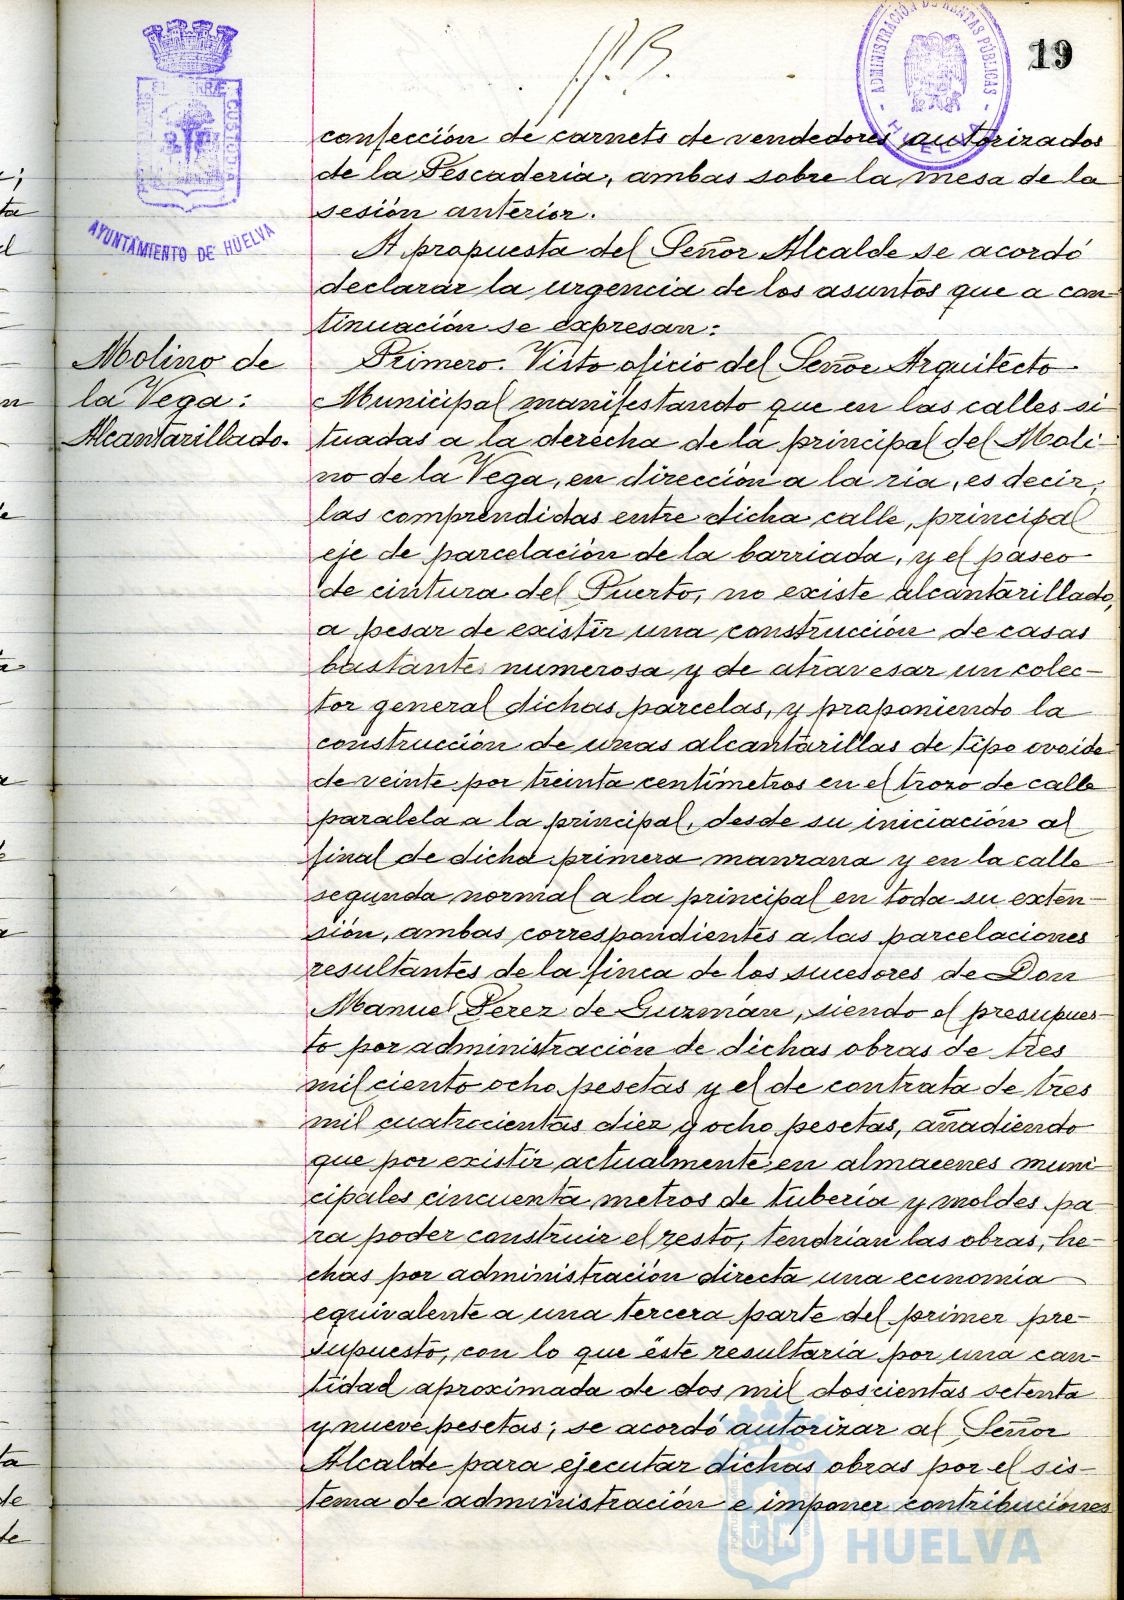 19
ADMINISTRACIÓN DE RENTAS PÚBLICAS
HUELVA
AYUNTAMIENTO DE HUELVA
confección de carnets de vendedores autorizados
de la Pescaderia, ambas sobre la mesa de la
sesión anterior.
A propuesta del Señor Alcalde se acordó
declarar la urgencia de los asuntos que a con-
tinuación se expresan:
Molino de
la Vega:
Alcantarillado.
Primero. Visto oficio del Señor Arquitecto
Municipal manifestando que en las calles si-
tuadas a la derecha de la principal del Moli-
no de la Vega, en dirección a la ria, es decir,
las comprendidas entre dicha calle, principal
eje de parcelación de la barriada, y el paseo
de cintura del Puerto, no existe alcantarillado,
a pesar de existir una construcción de casas
bastante numerosa y de atravesar un colec-
tor general dichas parcelas, y proponiendo la
construcción de unas alcantarillas de tipo ovoide
de veinte por treinta centímetros en el trozo de calle
paralela a la principal, desde su iniciación al
final de dicha primera manzana y en la calle
segunda normal a la principal en toda su exten-
sión, ambas correspondientes a las parcelaciones
resultantes de la finca de los sucesores de Don
Manuel Perez de Guzmán, siendo el presupues-
to por administración de dichas obras de tres
mil ciento ocho pesetas y el de contrata de tres
mil cuatrocientas diez y ocho pesetas, añadiendo
que por existir actualmente en almacenes muni-
cipales cincuenta metros de tubería y moldes pa-
ra poder construir el resto, tendrían las obras, he-
chas por administración directa una economía
equivalente a una tercera parte del primer pre-
supuesto, con lo que éste resultaría por una can-
tidad aproximada de dos mil doscientas setenta
y nueve pesetas; se acordó autorizar al Señor
Alcalde para ejecutar dichas obras por el sis-
tema de administración e imponer contribuciones
HUELVA